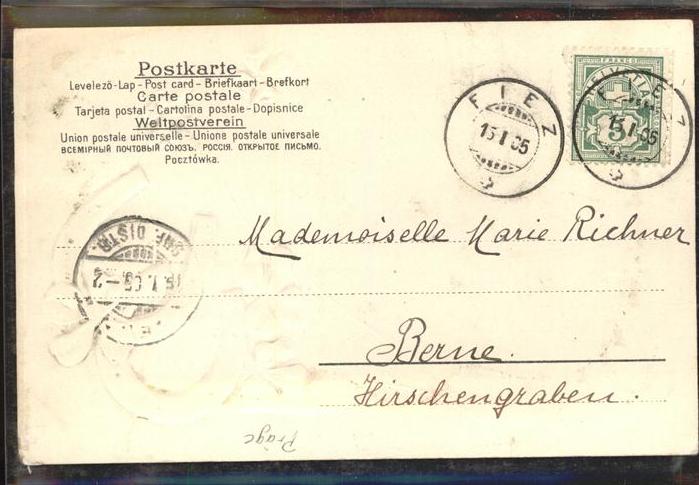 Postkarte
Levelező-Lap - Post card - Briefkaart - Brefkort
Carte postale
Tarjeta postal - Cartolina postale - Dopisnice
Weltpostverein
Union postale universelle - Unione postale universale
ВСЕМІРНЫЙ ПОЧТОВЫЙ СОЮЗЪ. РОССІЯ. ОТКРЫТОЕ ПИСЬМО.
Pocztówka.
FIEZ
15 I 05
FRANCO
HELVETIA
5
15 I 05
Mademoiselle Marie Richner
BRF. DISTR.
15. I. 05. - 2
Berne.
Hirschengraben.
Präge